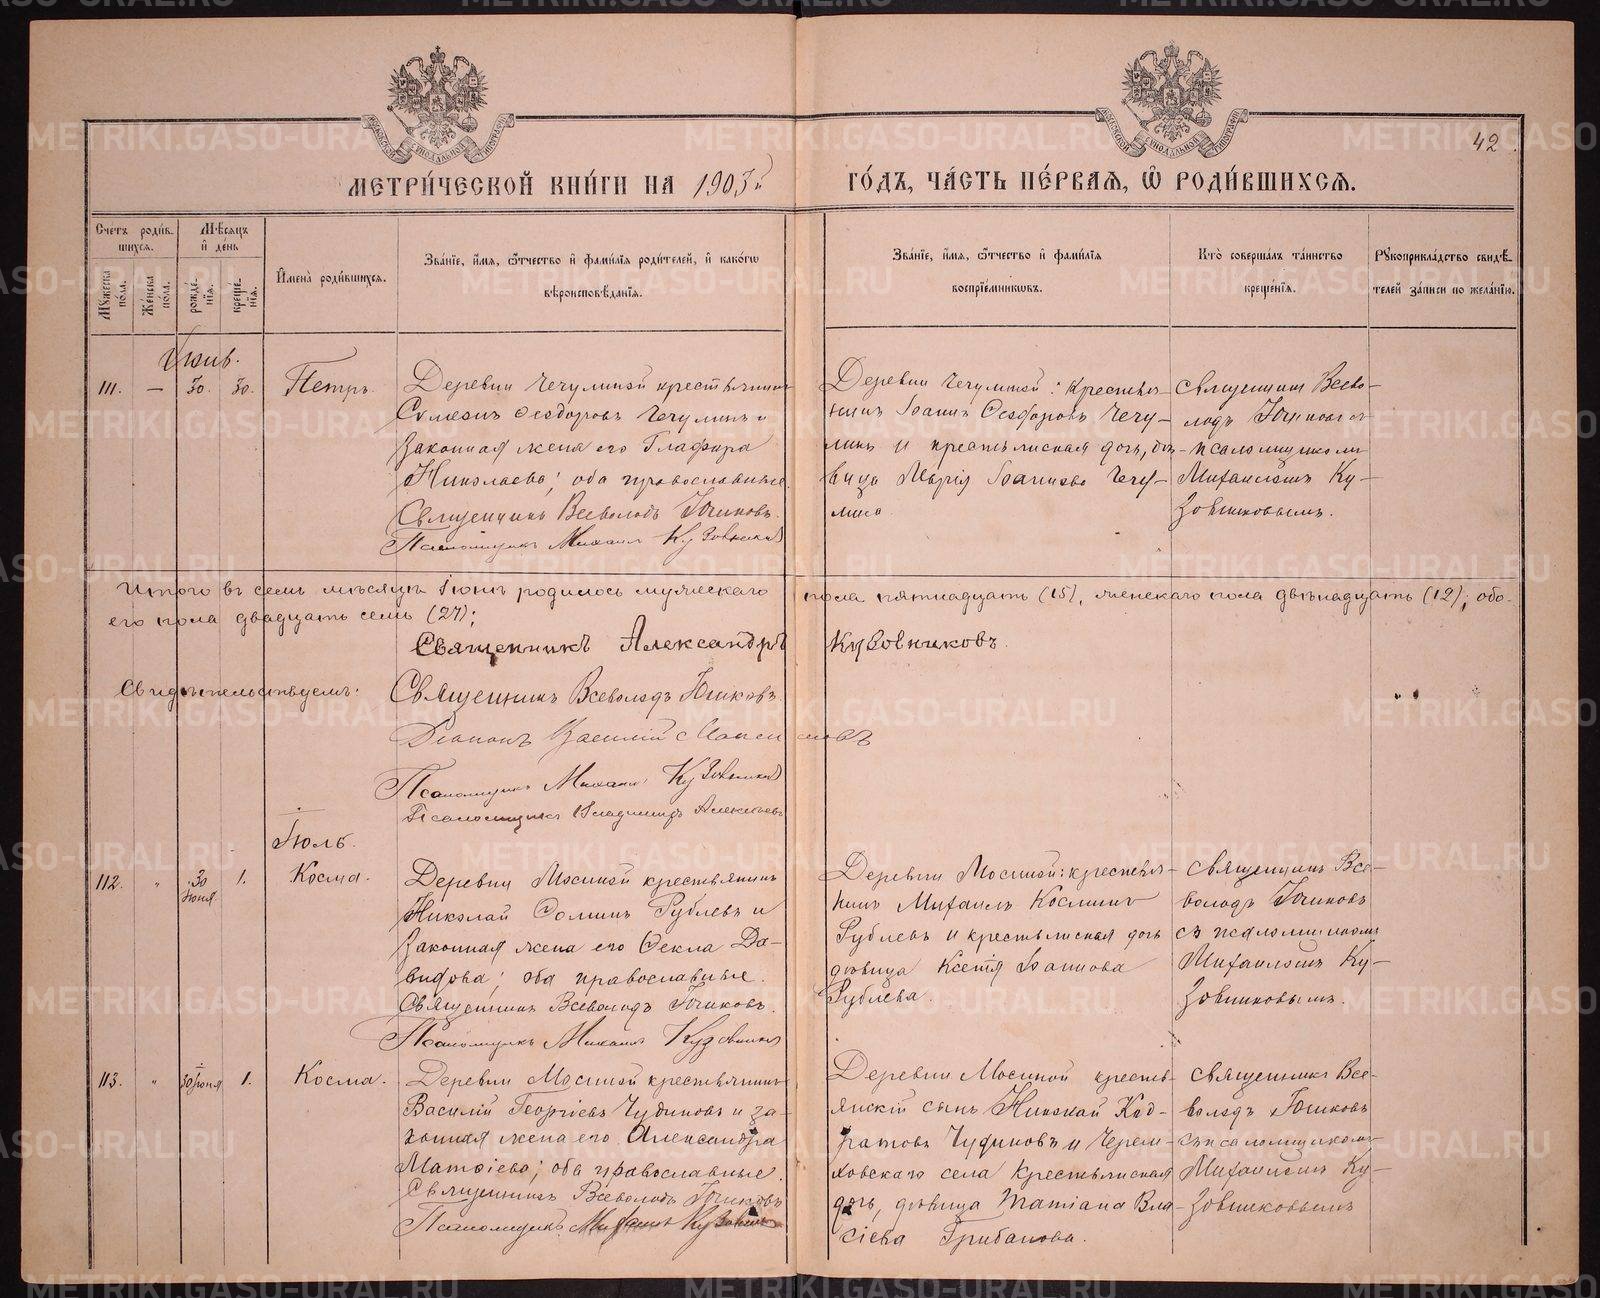 42
МЕТРИ́ЧЕСКОЙ КНИ́ГИ НА 1903й ГО́ДЪ, ЧА́СТЬ ПЕ́РВАЯ, Ѡ РОДИ́ВШИХСЯ.
Счетъ роди́в-
шихся.
Мѣсяцъ
и де́нь
Мꙋжеска по́ла.
Же́нска по́ла.
рожде́-нїя.
креще́-нїя.
И́мена̀ роди́вшихся.
Зва́нїе, и́мя, ѻ́тчество и фами́лїя роди́телей, и како́гѡ
вѣроисповѣ́данїя.
Зва́нїе, и́мя, ѻ́тчество и фами́лїя
воспрїе́мникѡвъ.
Кто̀ соверша́лъ та́инство
креще́нїя.
Рꙋкоприкла́дство свидѣ́-
телей за́писи по жела́нїю.
111. — 30. 30. Петръ.
Деревни Чечулиной крестьянинъ
Ѳеодоровъ Чечулинъ и
законная жена его Глафира
Николаева; оба православные.
Священникъ Всеволодъ
Псаломщикъ Михаилъ Кузовников
Деревни Чечулиной: крестья-
нинъ Іоаннъ Ѳеодоровъ Чечу-
линъ и крестьянская дочь, дѣ-
вица Марія Іоаннова Чечу-
лина
Священникъ Всево-
лодъ
псаломщикомъ
Михаиломъ Ку-
зовниковымъ.
Итого въ семъ мѣсяцѣ Іюнѣ родилось мужескаго пола пятнадцать (15), женскаго пола двѣнадцать (12), обо-
его пола двадцать семь (27);
Священникъ Александръ Кузовниковъ.
Свидѣтельствуемъ: Священникъ Всеволодъ
Діаконъ Василій
Псаломщикъ Михаилъ Кузовников
Псаломщикъ Владимиръ Алексѣевъ
Іюль.
112. " 30 Іюня 1. Косма.
Деревни Мосиной крестьянинъ
Николай Рублевъ и
законная жена его Ѳекла Да-
видова; оба православные.
Священникъ Всеволодъ
Псаломщикъ Михаилъ Кузовников
Деревни Мосиной: крестья-
нинъ Михаилъ Косминъ
Рублевъ и крестьянская дочь
дѣвица Ксенія Іоаннова
Рублева.
Священникъ Все-
володъ
съ псаломщикомъ
Михаиломъ Ку-
зовниковымъ.
113. " 30 Іюня 1. Косма.
Деревни Мосиной крестьянинъ
Василій Георгіевъ Чудиновъ и за-
конная жена его Александра
Матѳіева; оба православные.
Священникъ Всеволодъ
Псаломщикъ Михаилъ Кузовников
Деревни Мосиной кресть-
янскій сынъ Николай Код-
ратовъ Чудиновъ и Черем-
ховскаго села крестьянская
дочь, дѣвица Татіана Вла-
сіева Грибанова.
Священникъ Все-
володъ
съ псаломщикомъ
Михаиломъ Ку-
зовниковымъ
METRIKI.GASO-URAL.RU